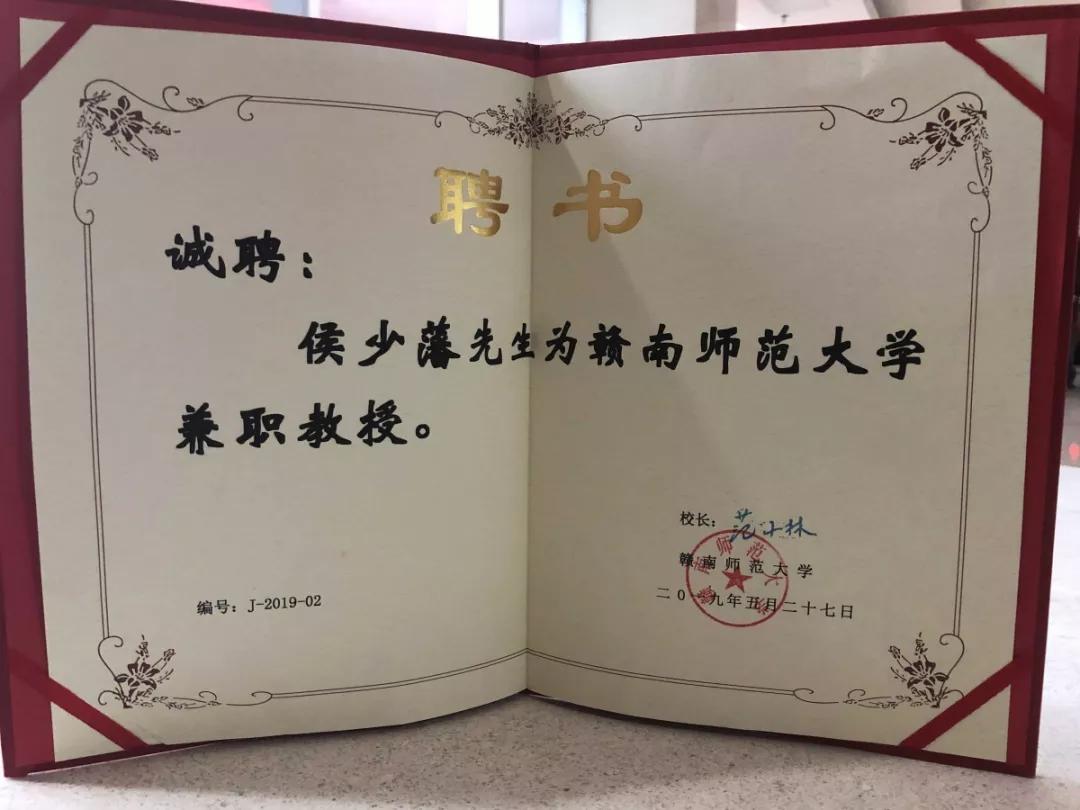 聘书
诚聘：
侯少藩先生为赣南师范大学
兼职教授。
校长：范小林
赣南师范大学
二〇一九年五月二十七日
编号：J-2019-02
赣南师范大学